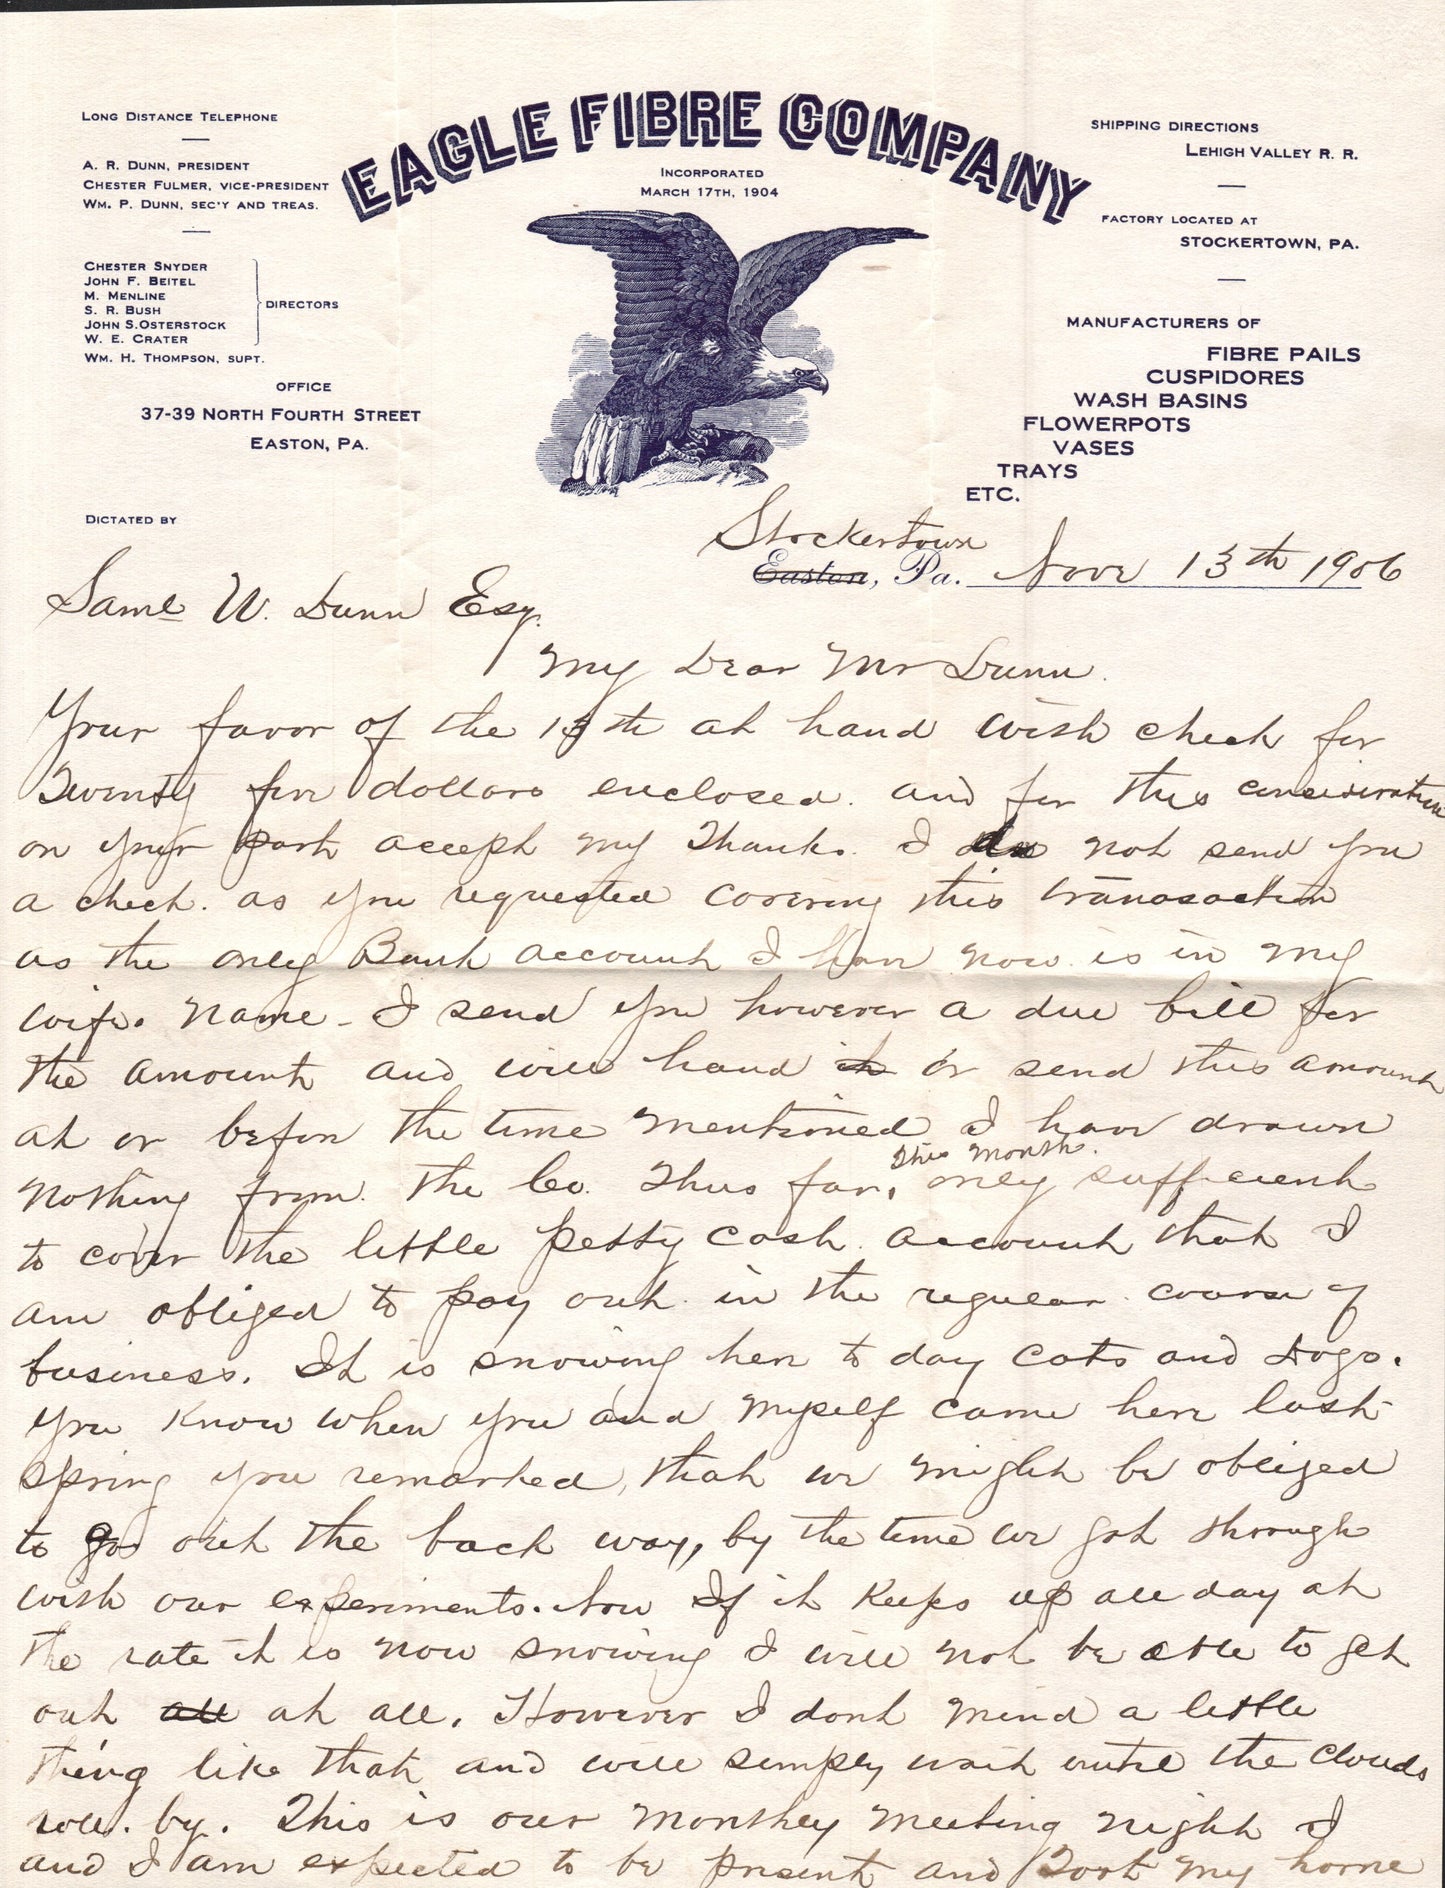 LONG DISTANCE TELEPHONE
A. R. DUNN, PRESIDENT
CHESTER FULMER, VICE-PRESIDENT
WM. P. DUNN, SEC'Y AND TREAS.
CHESTER SNYDER
JOHN F. BEITEL
M. MENLINE
S. R. BUSH
JOHN S. OSTERSTOCK
W. E. CRATER
DIRECTORS
WM. H. THOMPSON, SUPT.
OFFICE
37-39 NORTH FOURTH STREET
EASTON, PA.
DICTATED BY
EAGLE FIBRE COMPANY
INCORPORATED
MARCH 17TH, 1904
SHIPPING DIRECTIONS
LEHIGH VALLEY R. R.
FACTORY LOCATED AT
STOCKERTOWN, PA.
MANUFACTURERS OF
FIBRE PAILS
CUSPIDORES
WASH BASINS
FLOWERPOTS
VASES
TRAYS
ETC.
Stockertown
Easton, Pa. Nov 13th 1906
Saml W. Dunn Esq.
My Dear Mr Dunn.
Your favor of the 13th at hand with check for
Twenty five dollars enclosed. and for this consideration
on your part accept my Thanks. I do not send you
a check. as you requested covering this transaction
as the only Bank account I have now is in my
wifes name - I send you however a due bill for
the amount and will hand it or send this amount
at or before the time mentioned I have drawn
this month.
nothing from the Co. Thus far, only sufficient
to cover the little petty cash account that I
am obliged to pay out in the regular course of
business. It is snowing here to day Cats and Dogs.
You know when you and myself came here last
spring you remarked, that we might be obliged
to go out the back way, by the time we got through
with our experiments. Now If it keeps up all day at
the rate it is now snowing I will not be able to get
out all at all. However I dont mind a little
thing like that and will simply wait until the Clouds
roll by. This is our monthly meeting night I
and I am expected to be present and Toot my horne